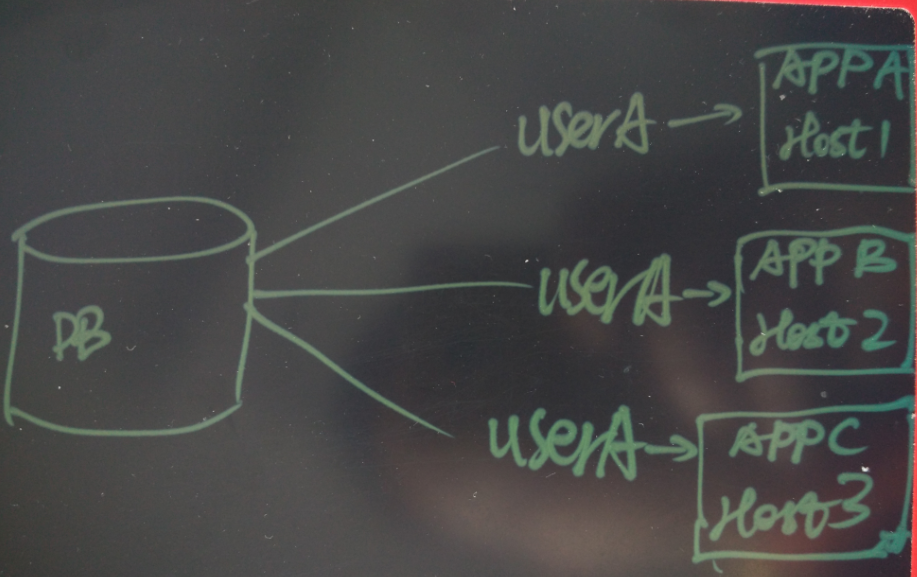 userA
APP A
Host1
DB
userA
APP B
Host2
userA
APPC
Host3